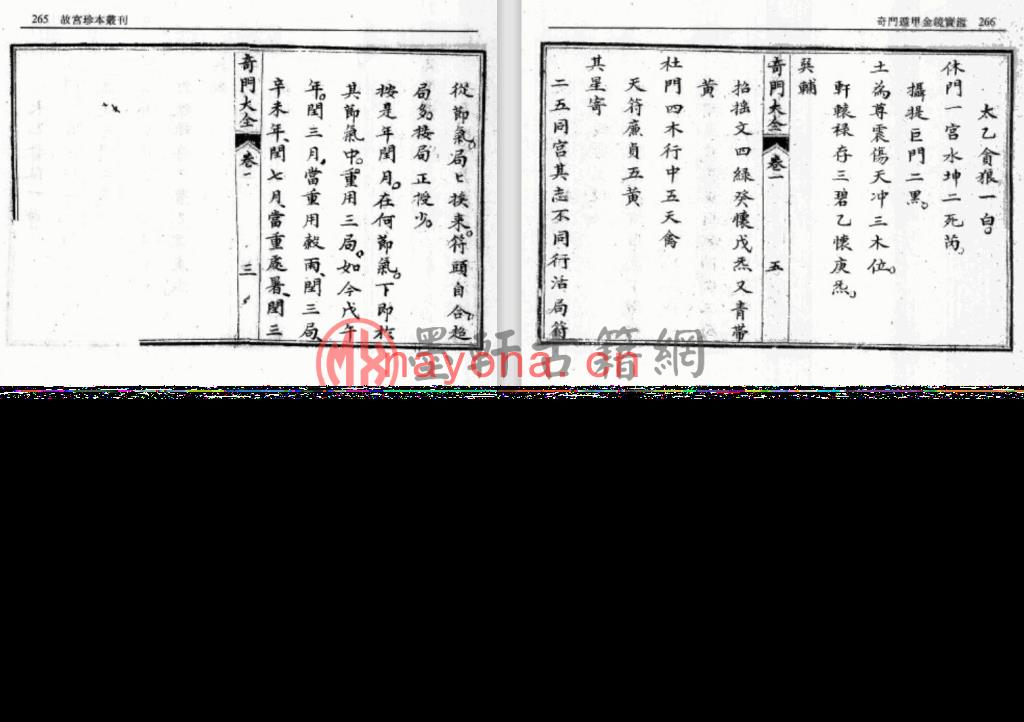 265 故宮珍本叢刊
從節氣局上挨来符頭自合超
局多接局正授少
按是年閏月在何節氣下即於
其節氣中重用三局如今戊午
年閏三月當重用穀雨閏三局
辛未年閏七月當重處暑閏三
奇門大全 卷一 三
奇門遁甲金鏡寶鑑 266
太乙貪狼一白
休門一宮水坤二死芮
攝提巨門二黑
土為尊震傷天冲三木位
軒轅祿存三碧乙懷庚炁
巽輔
奇門大全 卷一 五
招搖文四綠癸懷戊炁又青帶
黄
杜門四木行中五天禽
天符廉貞五黄
其星寄
二五同宮其志不同行活局符
墨軒古籍網
mayona.cn